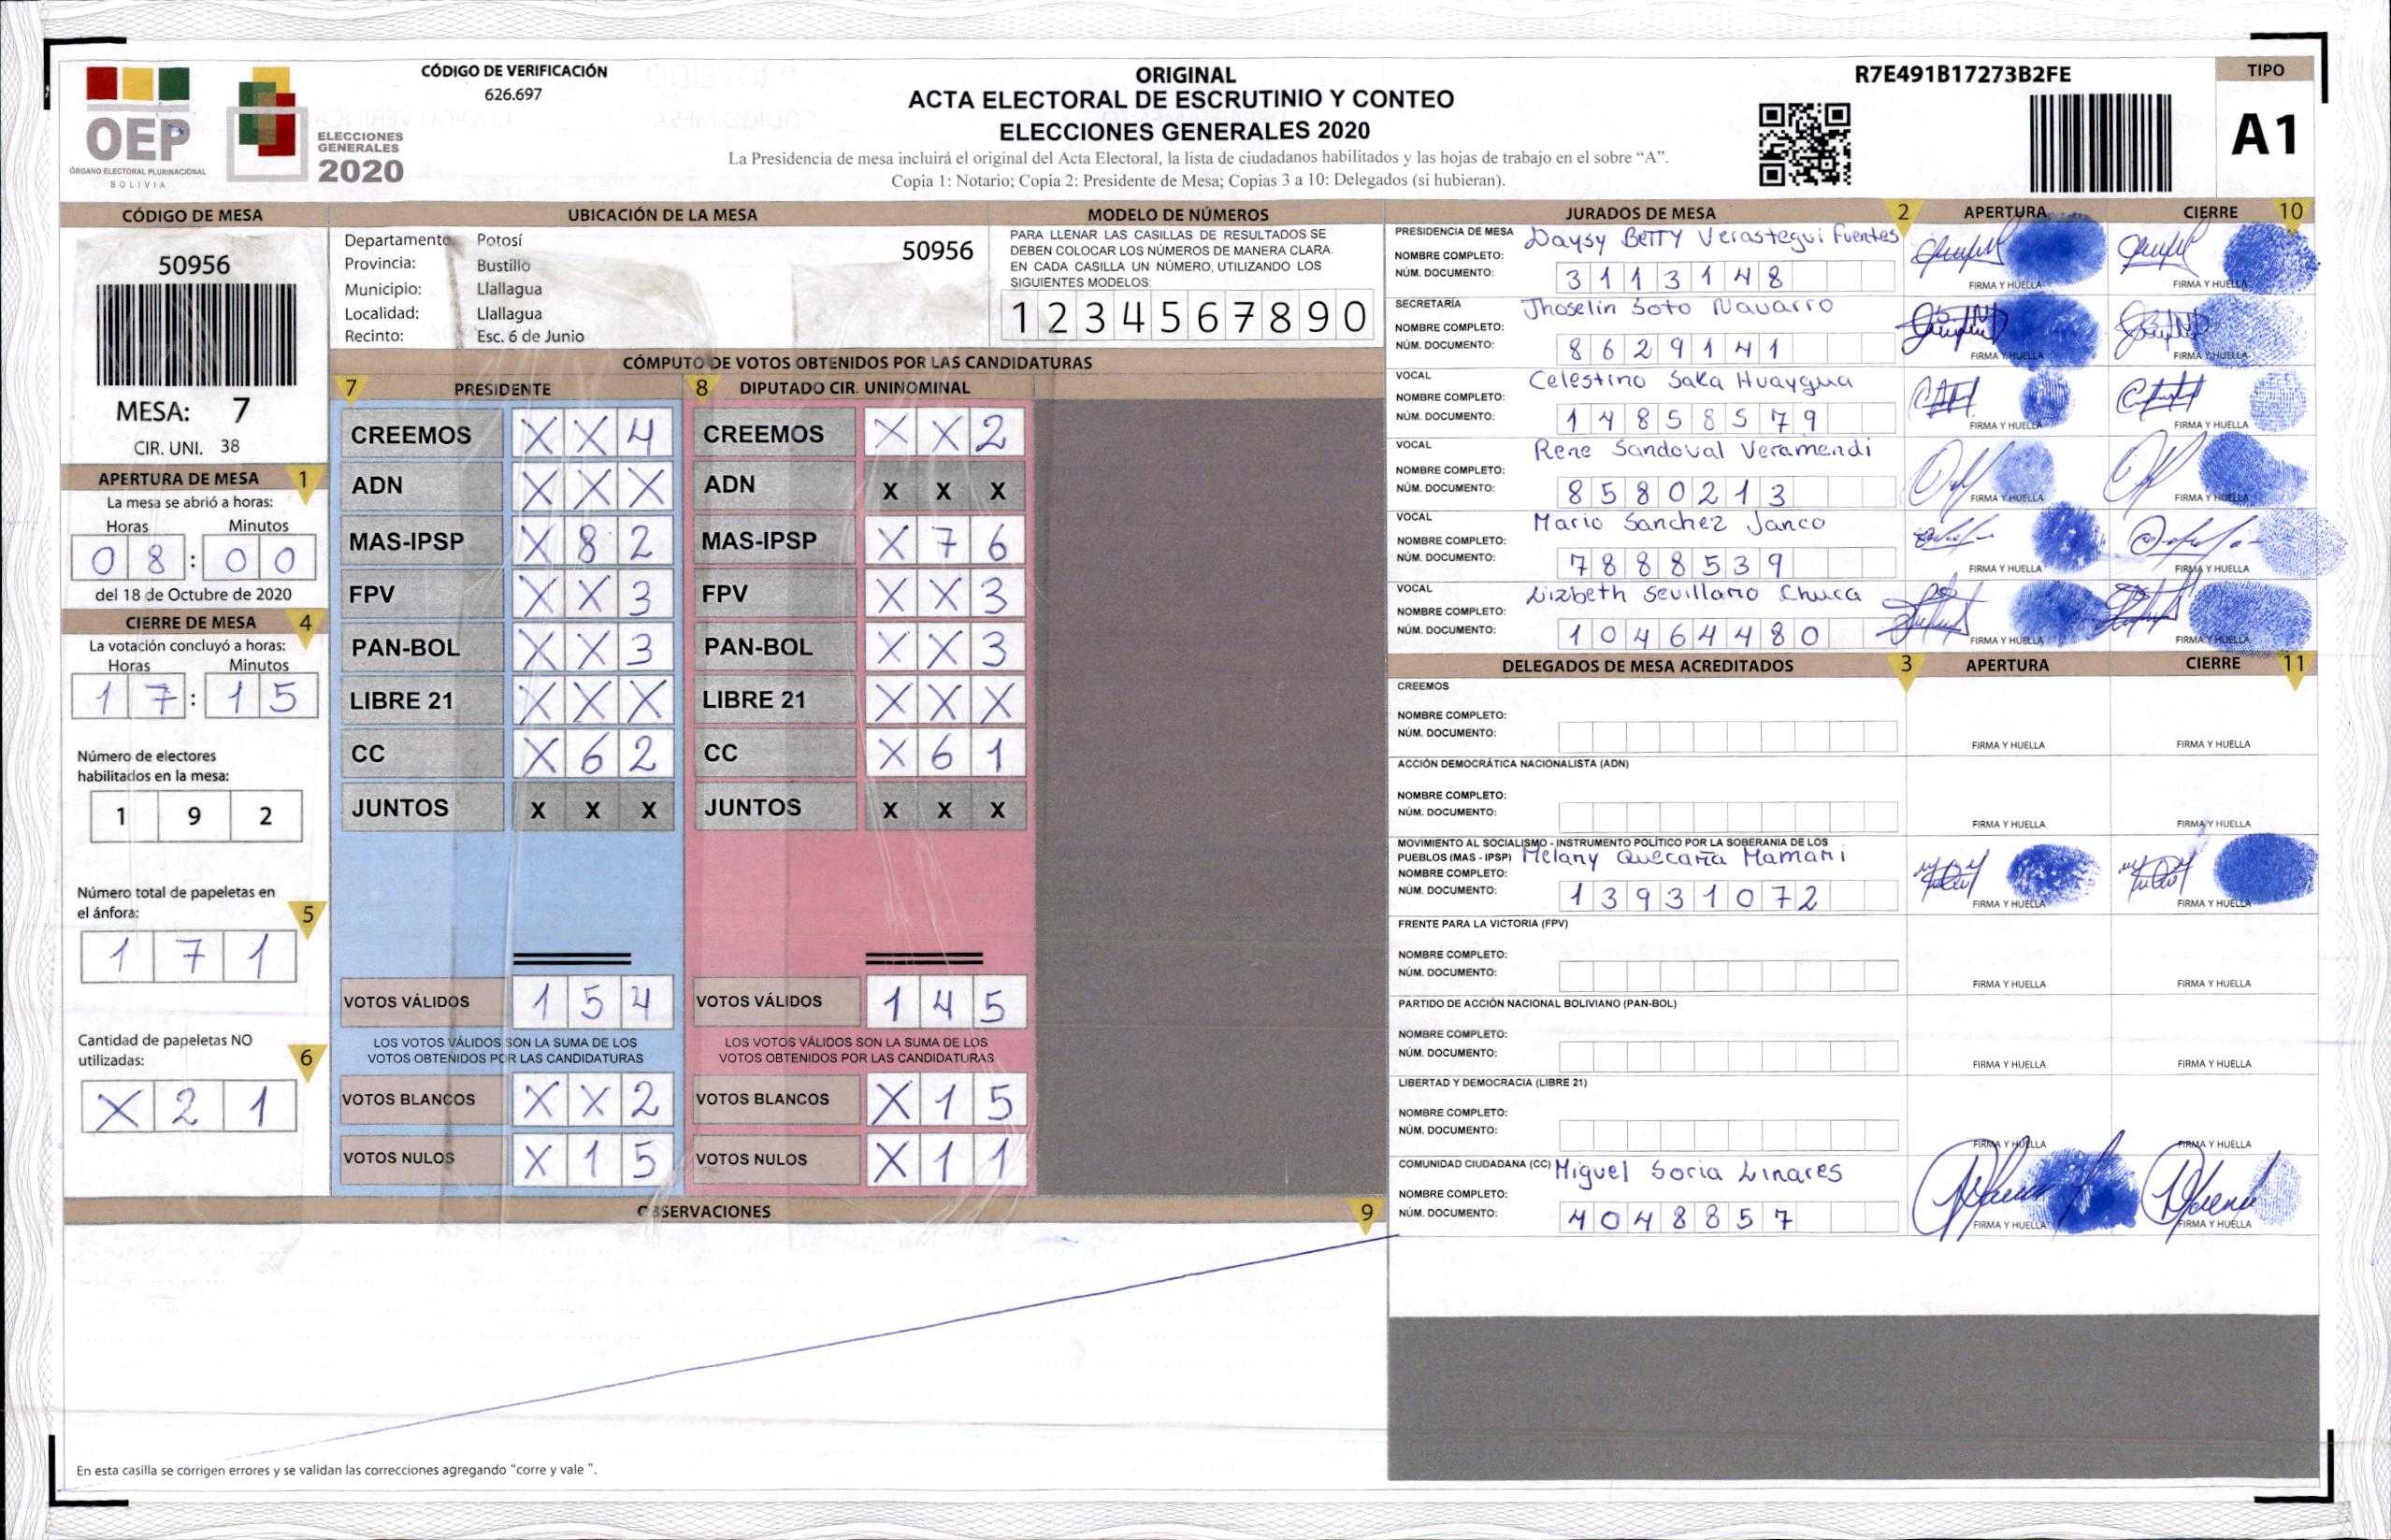 OEP
ÓRGANO ELECTORAL PLURINACIONAL
BOLIVIA
ELECCIONES
GENERALES
2020
CÓDIGO DE VERIFICACIÓN
626.697
ORIGINAL
ACTA ELECTORAL DE ESCRUTINIO Y CONTEO
ELECCIONES GENERALES 2020
La Presidencia de mesa incluirá el original del Acta Electoral, la lista de ciudadanos habilitados y las hojas de trabajo en el sobre “A”.
Copia 1: Notario; Copia 2: Presidente de Mesa; Copias 3 a 10: Delegados (si hubieran).
R7E491B17273B2FE
TIPO
A1
CÓDIGO DE MESA
50956
MESA: 7
CIR. UNI. 38
APERTURA DE MESA 1
La mesa se abrió a horas:
Horas Minutos
0 8 : 0 0
del 18 de Octubre de 2020
CIERRE DE MESA 4
La votación concluyó a horas:
Horas Minutos
1 7 : 1 5
Número de electores
habilitados en la mesa:
1 9 2
Número total de papeletas en
el ánfora: 5
1 7 1
Cantidad de papeletas NO
utilizadas: 6
X 2 1
UBICACIÓN DE LA MESA
Departamento: Potosí 50956
Provincia: Bustillo
Municipio: Llallagua
Localidad: Llallagua
Recinto: Esc. 6 de Junio
MODELO DE NÚMEROS
PARA LLENAR LAS CASILLAS DE RESULTADOS SE
DEBEN COLOCAR LOS NÚMEROS DE MANERA CLARA.
EN CADA CASILLA UN NÚMERO, UTILIZANDO LOS
SIGUIENTES MODELOS:
1 2 3 4 5 6 7 8 9 0
CÓMPUTO DE VOTOS OBTENIDOS POR LAS CANDIDATURAS
7 PRESIDENTE
CREEMOS X X 4
ADN X X X
MAS-IPSP X 8 2
FPV X X 3
PAN-BOL X X 3
LIBRE 21 X X X
CC X 6 2
JUNTOS X X X
VOTOS VÁLIDOS 1 5 4
LOS VOTOS VÁLIDOS SON LA SUMA DE LOS
VOTOS OBTENIDOS POR LAS CANDIDATURAS
VOTOS BLANCOS X X 2
VOTOS NULOS X 1 5
8 DIPUTADO CIR. UNINOMINAL
CREEMOS X X 2
ADN X X X
MAS-IPSP X 7 6
FPV X X 3
PAN-BOL X X 3
LIBRE 21 X X X
CC X 6 1
JUNTOS X X X
VOTOS VÁLIDOS 1 4 5
LOS VOTOS VÁLIDOS SON LA SUMA DE LOS
VOTOS OBTENIDOS POR LAS CANDIDATURAS
VOTOS BLANCOS X 1 5
VOTOS NULOS X 1 1
OBSERVACIONES 9
En esta casilla se corrigen errores y se validan las correcciones agregando “corre y vale ”.
JURADOS DE MESA 2 APERTURA CIERRE 10
PRESIDENCIA DE MESA Daysy BETTY Verastegui Fuentes
NOMBRE COMPLETO:
NÚM. DOCUMENTO: 3 1 1 3 1 4 8
FIRMA Y HUELLA FIRMA Y HUELLA
SECRETARÍA Jhoselin Soto Navarro
NOMBRE COMPLETO:
NÚM. DOCUMENTO: 8 6 2 9 1 4 1
FIRMA Y HUELLA FIRMA Y HUELLA
VOCAL Celestino Saka Huaygua
NOMBRE COMPLETO:
NÚM. DOCUMENTO: 1 4 8 5 8 5 7 9
FIRMA Y HUELLA FIRMA Y HUELLA
VOCAL Rene Sandoval Veramendi
NOMBRE COMPLETO:
NÚM. DOCUMENTO: 8 5 8 0 2 1 3
FIRMA Y HUELLA FIRMA Y HUELLA
VOCAL Mario Sanchez Janco
NOMBRE COMPLETO:
NÚM. DOCUMENTO: 7 8 8 8 5 3 9
FIRMA Y HUELLA FIRMA Y HUELLA
VOCAL Lizbeth Sevillano Chuca
NOMBRE COMPLETO:
NÚM. DOCUMENTO: 1 0 4 6 4 4 8 0
FIRMA Y HUELLA FIRMA Y HUELLA
DELEGADOS DE MESA ACREDITADOS 3 APERTURA CIERRE 11
CREEMOS
NOMBRE COMPLETO:
NÚM. DOCUMENTO:
FIRMA Y HUELLA FIRMA Y HUELLA
ACCIÓN DEMOCRÁTICA NACIONALISTA (ADN)
NOMBRE COMPLETO:
NÚM. DOCUMENTO:
FIRMA Y HUELLA FIRMA Y HUELLA
MOVIMIENTO AL SOCIALISMO - INSTRUMENTO POLÍTICO POR LA SOBERANIA DE LOS
PUEBLOS (MAS - IPSP) Melany Quecaña Mamani
NOMBRE COMPLETO:
NÚM. DOCUMENTO: 1 3 9 3 1 0 7 2
FIRMA Y HUELLA FIRMA Y HUELLA
FRENTE PARA LA VICTORIA (FPV)
NOMBRE COMPLETO:
NÚM. DOCUMENTO:
FIRMA Y HUELLA FIRMA Y HUELLA
PARTIDO DE ACCIÓN NACIONAL BOLIVIANO (PAN-BOL)
NOMBRE COMPLETO:
NÚM. DOCUMENTO:
FIRMA Y HUELLA FIRMA Y HUELLA
LIBERTAD Y DEMOCRACIA (LIBRE 21)
NOMBRE COMPLETO:
NÚM. DOCUMENTO:
FIRMA Y HUELLA FIRMA Y HUELLA
COMUNIDAD CIUDADANA (CC) Miguel Soria Linares
NOMBRE COMPLETO:
NÚM. DOCUMENTO: 4 0 4 8 8 5 7
FIRMA Y HUELLA FIRMA Y HUELLA